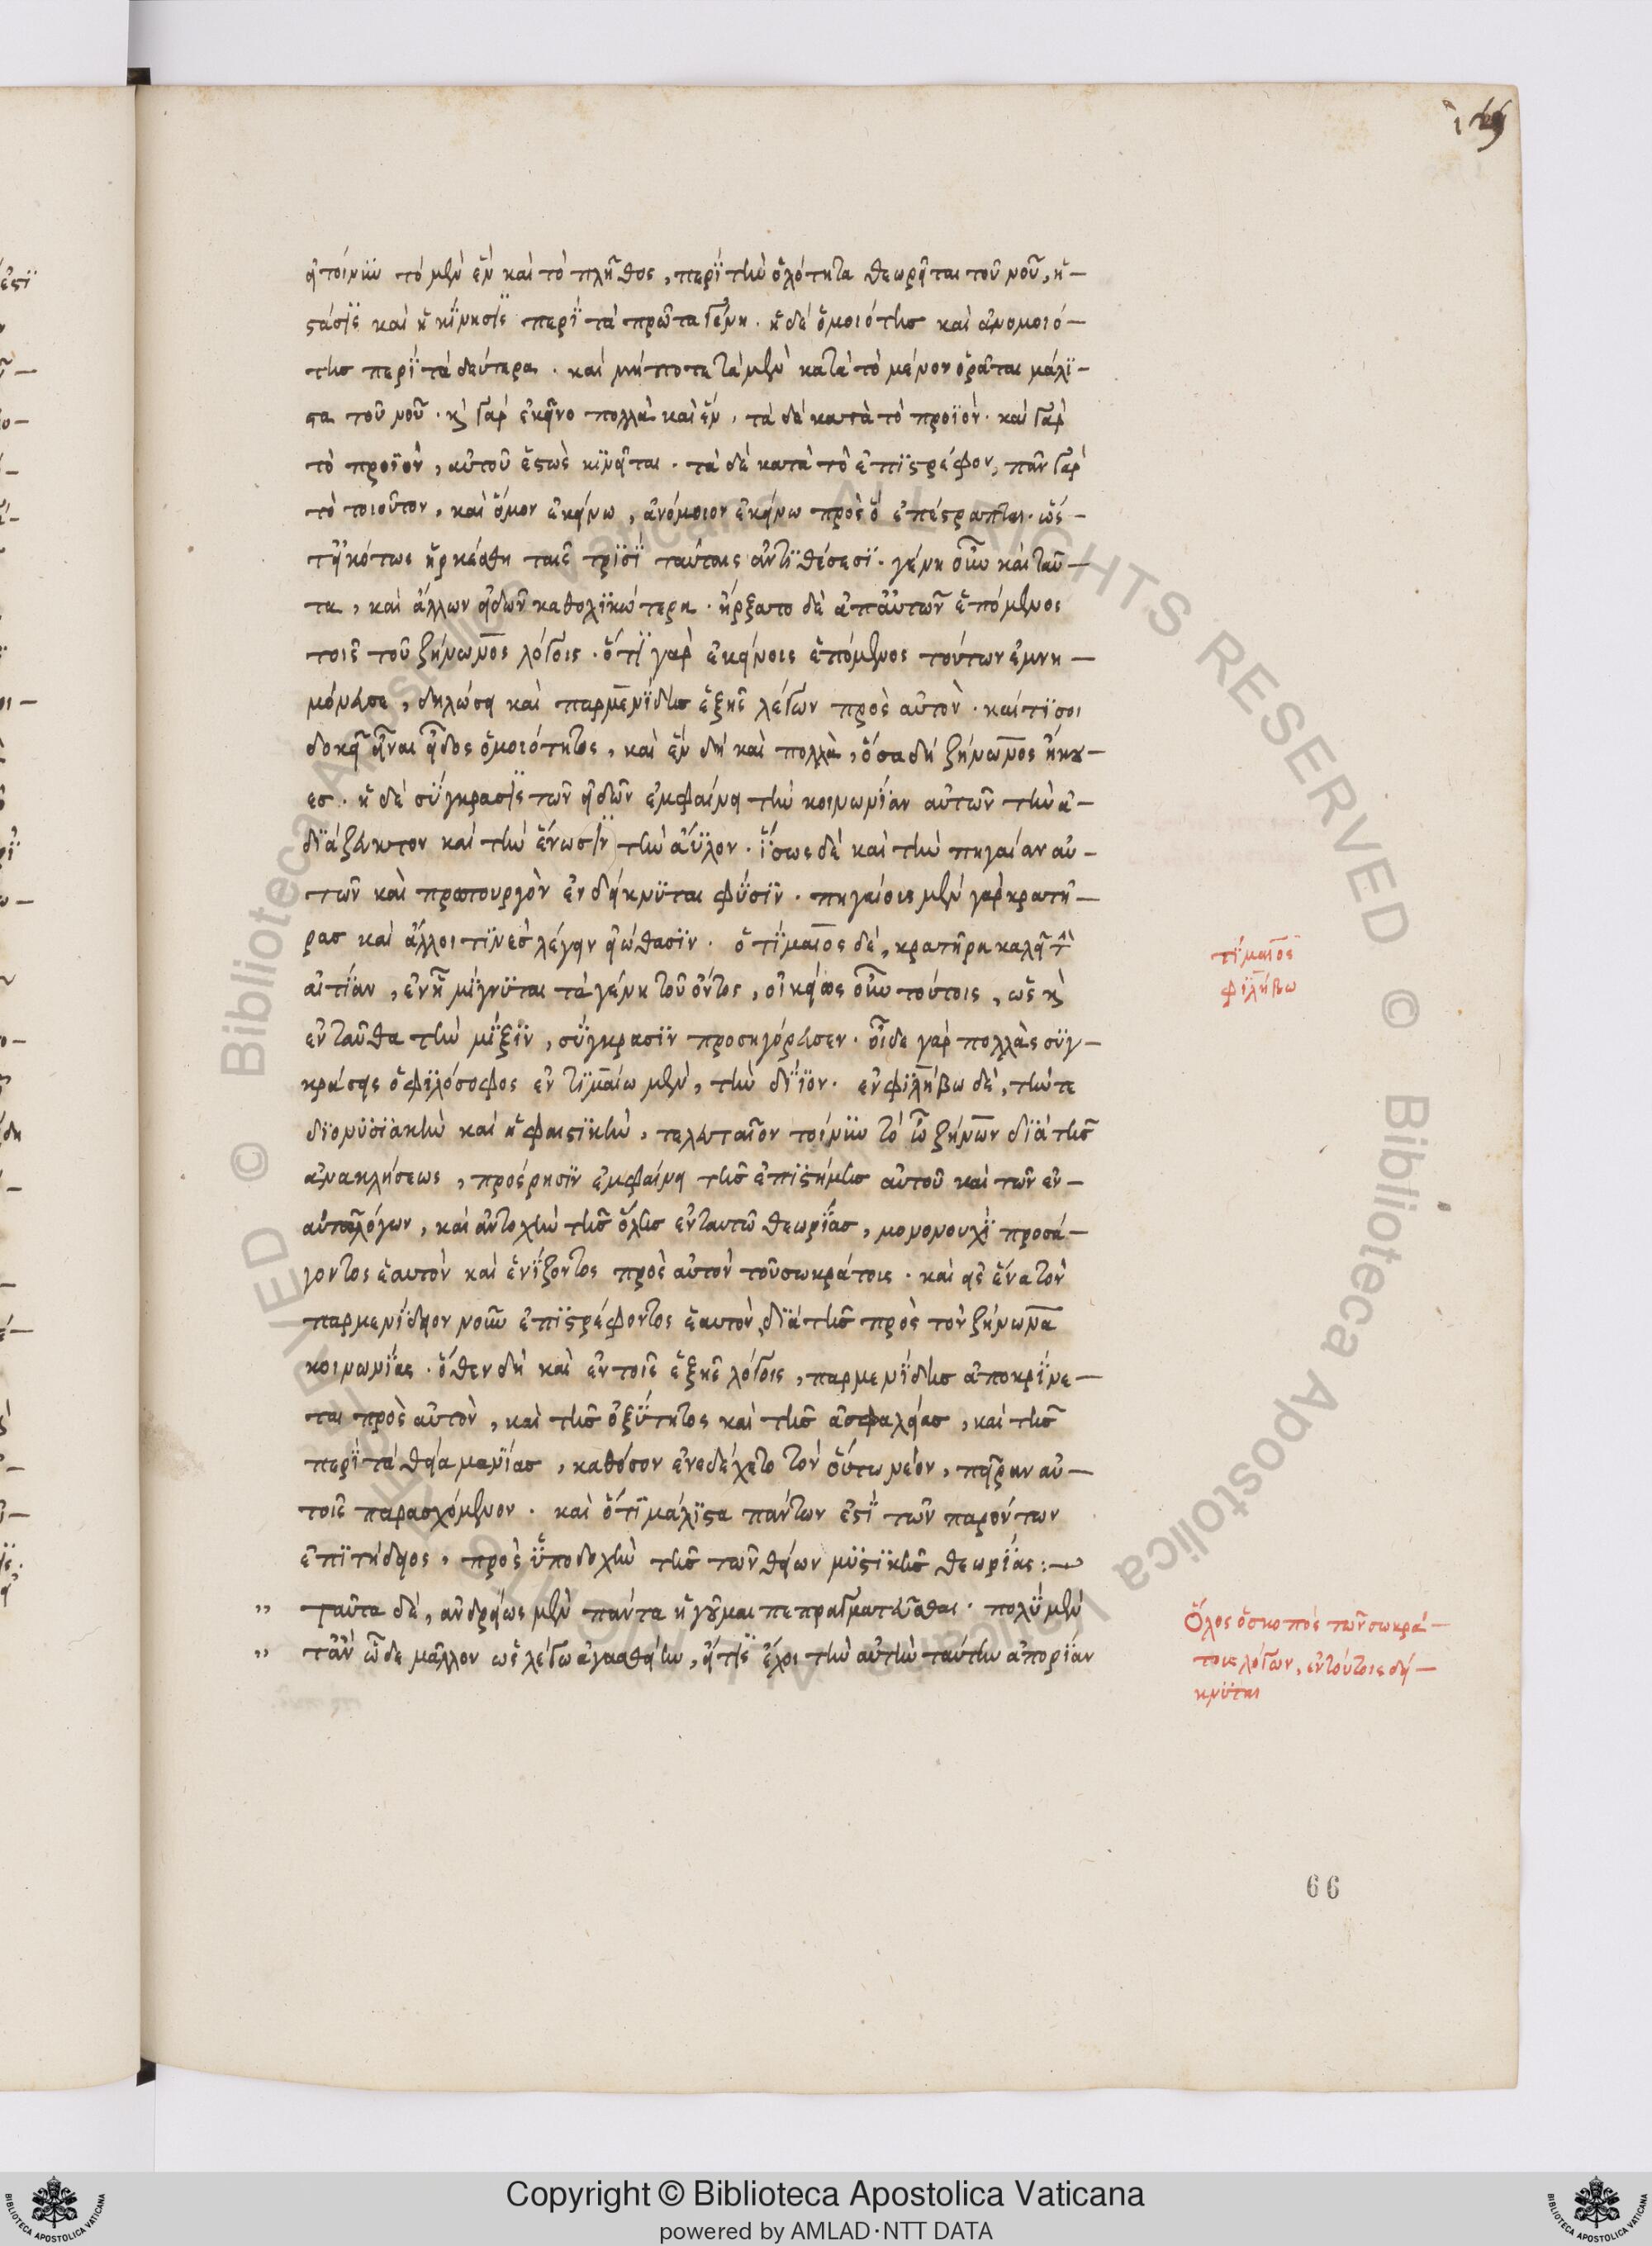 εἰ τοίνυν τὸ μὲν ἓν καὶ τὸ πλῆθος, περὶ τὴν ὁλότητα θεωρεῖται τοῦ νοῦ, ἡ
στάσις καὶ ἡ κίνησις περὶ τὰ πρῶτα γένη. ἡ δὲ ὁμοιότης καὶ ἀνομοιό-
της περὶ τὰ δεύτερα. καὶ μήποτε τὰ μὲν κατὰ τὸ μένον ὁρᾶται μάλι-
στα τοῦ νοῦ. καὶ γὰρ ἐκεῖνο πολλὰ καὶ ἕν, τὰ δὲ κατὰ τὸ προϊόν. καὶ γὰρ
τὸ προϊὸν, αὐτοῦ ἑστὼς κινεῖται. τὰ δὲ κατὰ τὸ ἐπιστρέφον, πᾶν γὰρ
τὸ τοιοῦτον, καὶ ὅμοιον ἐκείνω, ἀνόμοιον ἐκείνω πρὸς ὃ ἐπέστραπται. ὥσ-
τ' εἰκότως ἠρκέσθη ταῖς τρισὶ ταύταις ἀντιθέσεσι. γένη οὖν καὶ ταῦ-
τα, καὶ ἄλλων εἰδῶν καθολικώτερα. ἤρξατο δὲ ἀπ' αὐτῶν ἑπόμενος
τοῖς τοῦ ζήνωνος λόγοις. ὅτι γὰρ ἐκείνοις ἑπόμενος τούτων ἐμνη-
μόνευσε, δηλώσει καὶ παρμενίδης ἑξῆς λέγων πρὸς αὐτὸν. καί τί σοι
δοκεῖ εἶναι εἶδος ὁμοιότητος, καὶ ἓν δὴ καὶ πολλὰ, ὅσα δὴ ζήνωνος ἤκου-
ες. ἡ δὲ σύγκρασις τῶν εἰδῶν ἐμφαίνει τὴν κοινωνίαν αὐτῶν τὴν ἀ-
διάζευκτον καὶ τὴν ἕνωσιν τὴν ἄϋλον. ἴσως δὲ καὶ τὴν πηγαίαν αὐ-
τῶν καὶ πρωτουργὸν ἐνδείκνυται φύσιν. πηγαίους μὲν γὰρ κρατῆ-
ρας καὶ ἄλλοι τινὲς λέγειν εἰώθασιν. ὁ τίμαιος δὲ, κρατῆρα καλεῖ τὴν
αἰτίαν, ἐν ᾗ μίγνυται τὰ γένη τοῦ ὄντος, οἰκείως οὖν τούτοις, ὡς καὶ
ἐνταῦθα τὴν μίξιν, σύγκρασιν προσηγόρευσεν. οἶδε γὰρ πολλὰς συγ-
κράσεις ὁ φιλόσοφος ἐν τιμαίω μὲν, τὴν δίϊον. ἐν φιλήβω δὲ, τήν τε
διονυσιακὴν καὶ ἡφαιστικὴν, τελευταῖον τοίνυν τὸ ὦ ζήνων διὰ τῆς
ἀνακλήσεως, πρόσρησιν ἐμφαίνει τῆς ἐπιστήμης αὐτοῦ καὶ τῶν ἐν
αὐτῶ λόγων, καὶ ἀντοχὴν τῆς ὅλης ἐνταυτῶ θεωρίας, μονονουχὶ προσά-
γοντος ἑαυτὸν καὶ ἑνίζοντος πρὸς αὐτὸν τοῦ σωκράτους. καὶ εἰς ἕνα τὸν
παρμενίδειον νοῦν ἐπιστρέφοντος ἑαυτὸν, διὰ τῆς πρὸς τὸν ζήνωνα
κοινωνίας. ὅθεν δὴ καὶ ἐν τοῖς ἑξῆς λόγοις, παρμενίδης ἀποκρίνε-
ται πρὸς αὐτὸν, καὶ τῆς ὀξύτητος καὶ τῆς ἀσφαλείας, καὶ τῆς
περὶ τὰ θεῖα μανίας, καθόσον ἐνεδέχετο τὸν οὕτω νέον, πεῖραν αὐ-
τοῖς παρασχόμενον. καὶ ὅτι μάλιστα πάντων ἐστὶ τῶν παρόντων
ἐπιτήδειος, πρὸς ὑποδοχὴν τῆς τῶν θείων μυστικῆς θεωρίας:
„ ταῦτα δὲ, ἀνδρείως μὲν πάντα ἡγοῦμαι πεπραγματεῦσθαι. πολὺ μὲν
„ τἂν ὧδε μᾶλλον ὡς λέγω ἀγασθείην, εἴ τις ἔχοι τὴν αὐτὴν ταύτην ἀπορίαν
τίμαιος
φιλήβω
Ὅλος ὁ σκοπὸς τῶν σωκρά-
τους λόγων, ἐν τούτοις δεί-
κνυται
66